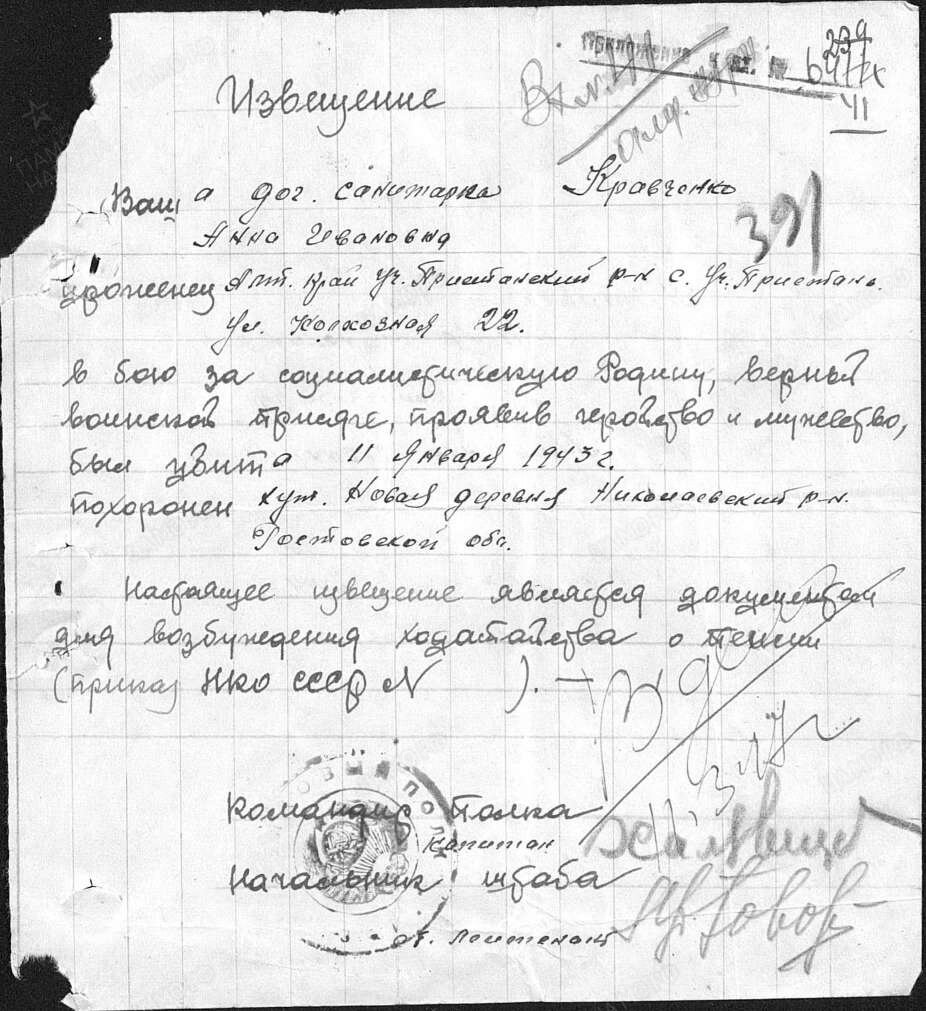 Приложение к вх. №
239
41
Извещение
391
Ваша доч. санитарка Кравченко
Анна Ивановна
уроженец Алт. край Уч. Пристанский р-н с. Уч. Пристань
ул. Колхозная 22.
в бою за социалистическую Родину, верный
воинской присяге, проявив геройство и мужество,
был убита 11 Января 1943 г.
похоронен хут. Новая деревня Николаевский р-н.
Ростовской обл.
Настоящее извещение является документом
для возбуждения ходатайства о пенсии
(приказ НКО СССР N ).
Командир Полка
Капитан
Начальник штаба
ст. лейтенант